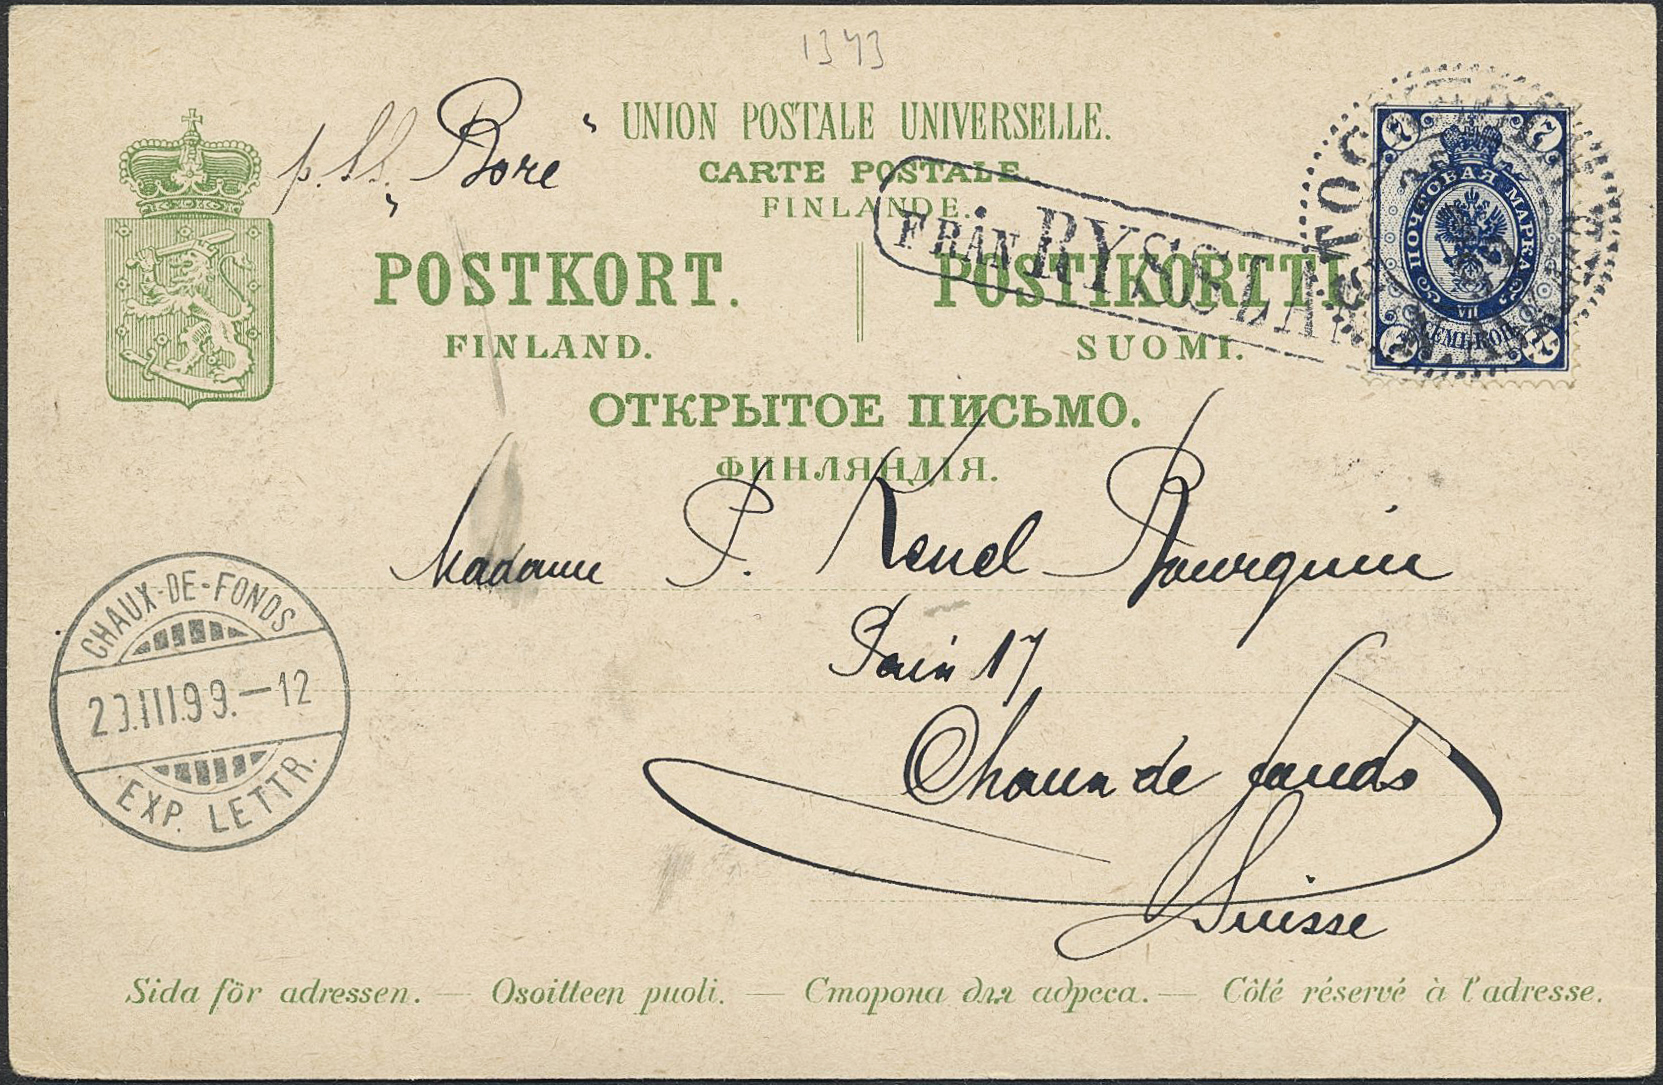 1343
p. SS. „Bore"
UNION POSTALE UNIVERSELLE.
CARTE POSTALE.
FINLANDE.
POSTKORT. POSTIKORTTI
FINLAND. SUOMI.
ОТКРЫТОЕ ПИСЬМО.
ФИНЛЯНДІЯ.
FRÅN RYSSLA
ПОЧТОВАЯ МАРКА
7 7 7 7
VII
СЕМЬ КОП.
STOCKHOLM
Madame P. Kenel Bourquin
Parc 17
Chaux de fonds
Suisse
CHAUX-DE-FONDS
29.III.99.–12
EXP. LETTR.
Sida för adressen. — Osoitteen puoli. — Сторона для адреса. — Côté réservé à l'adresse.